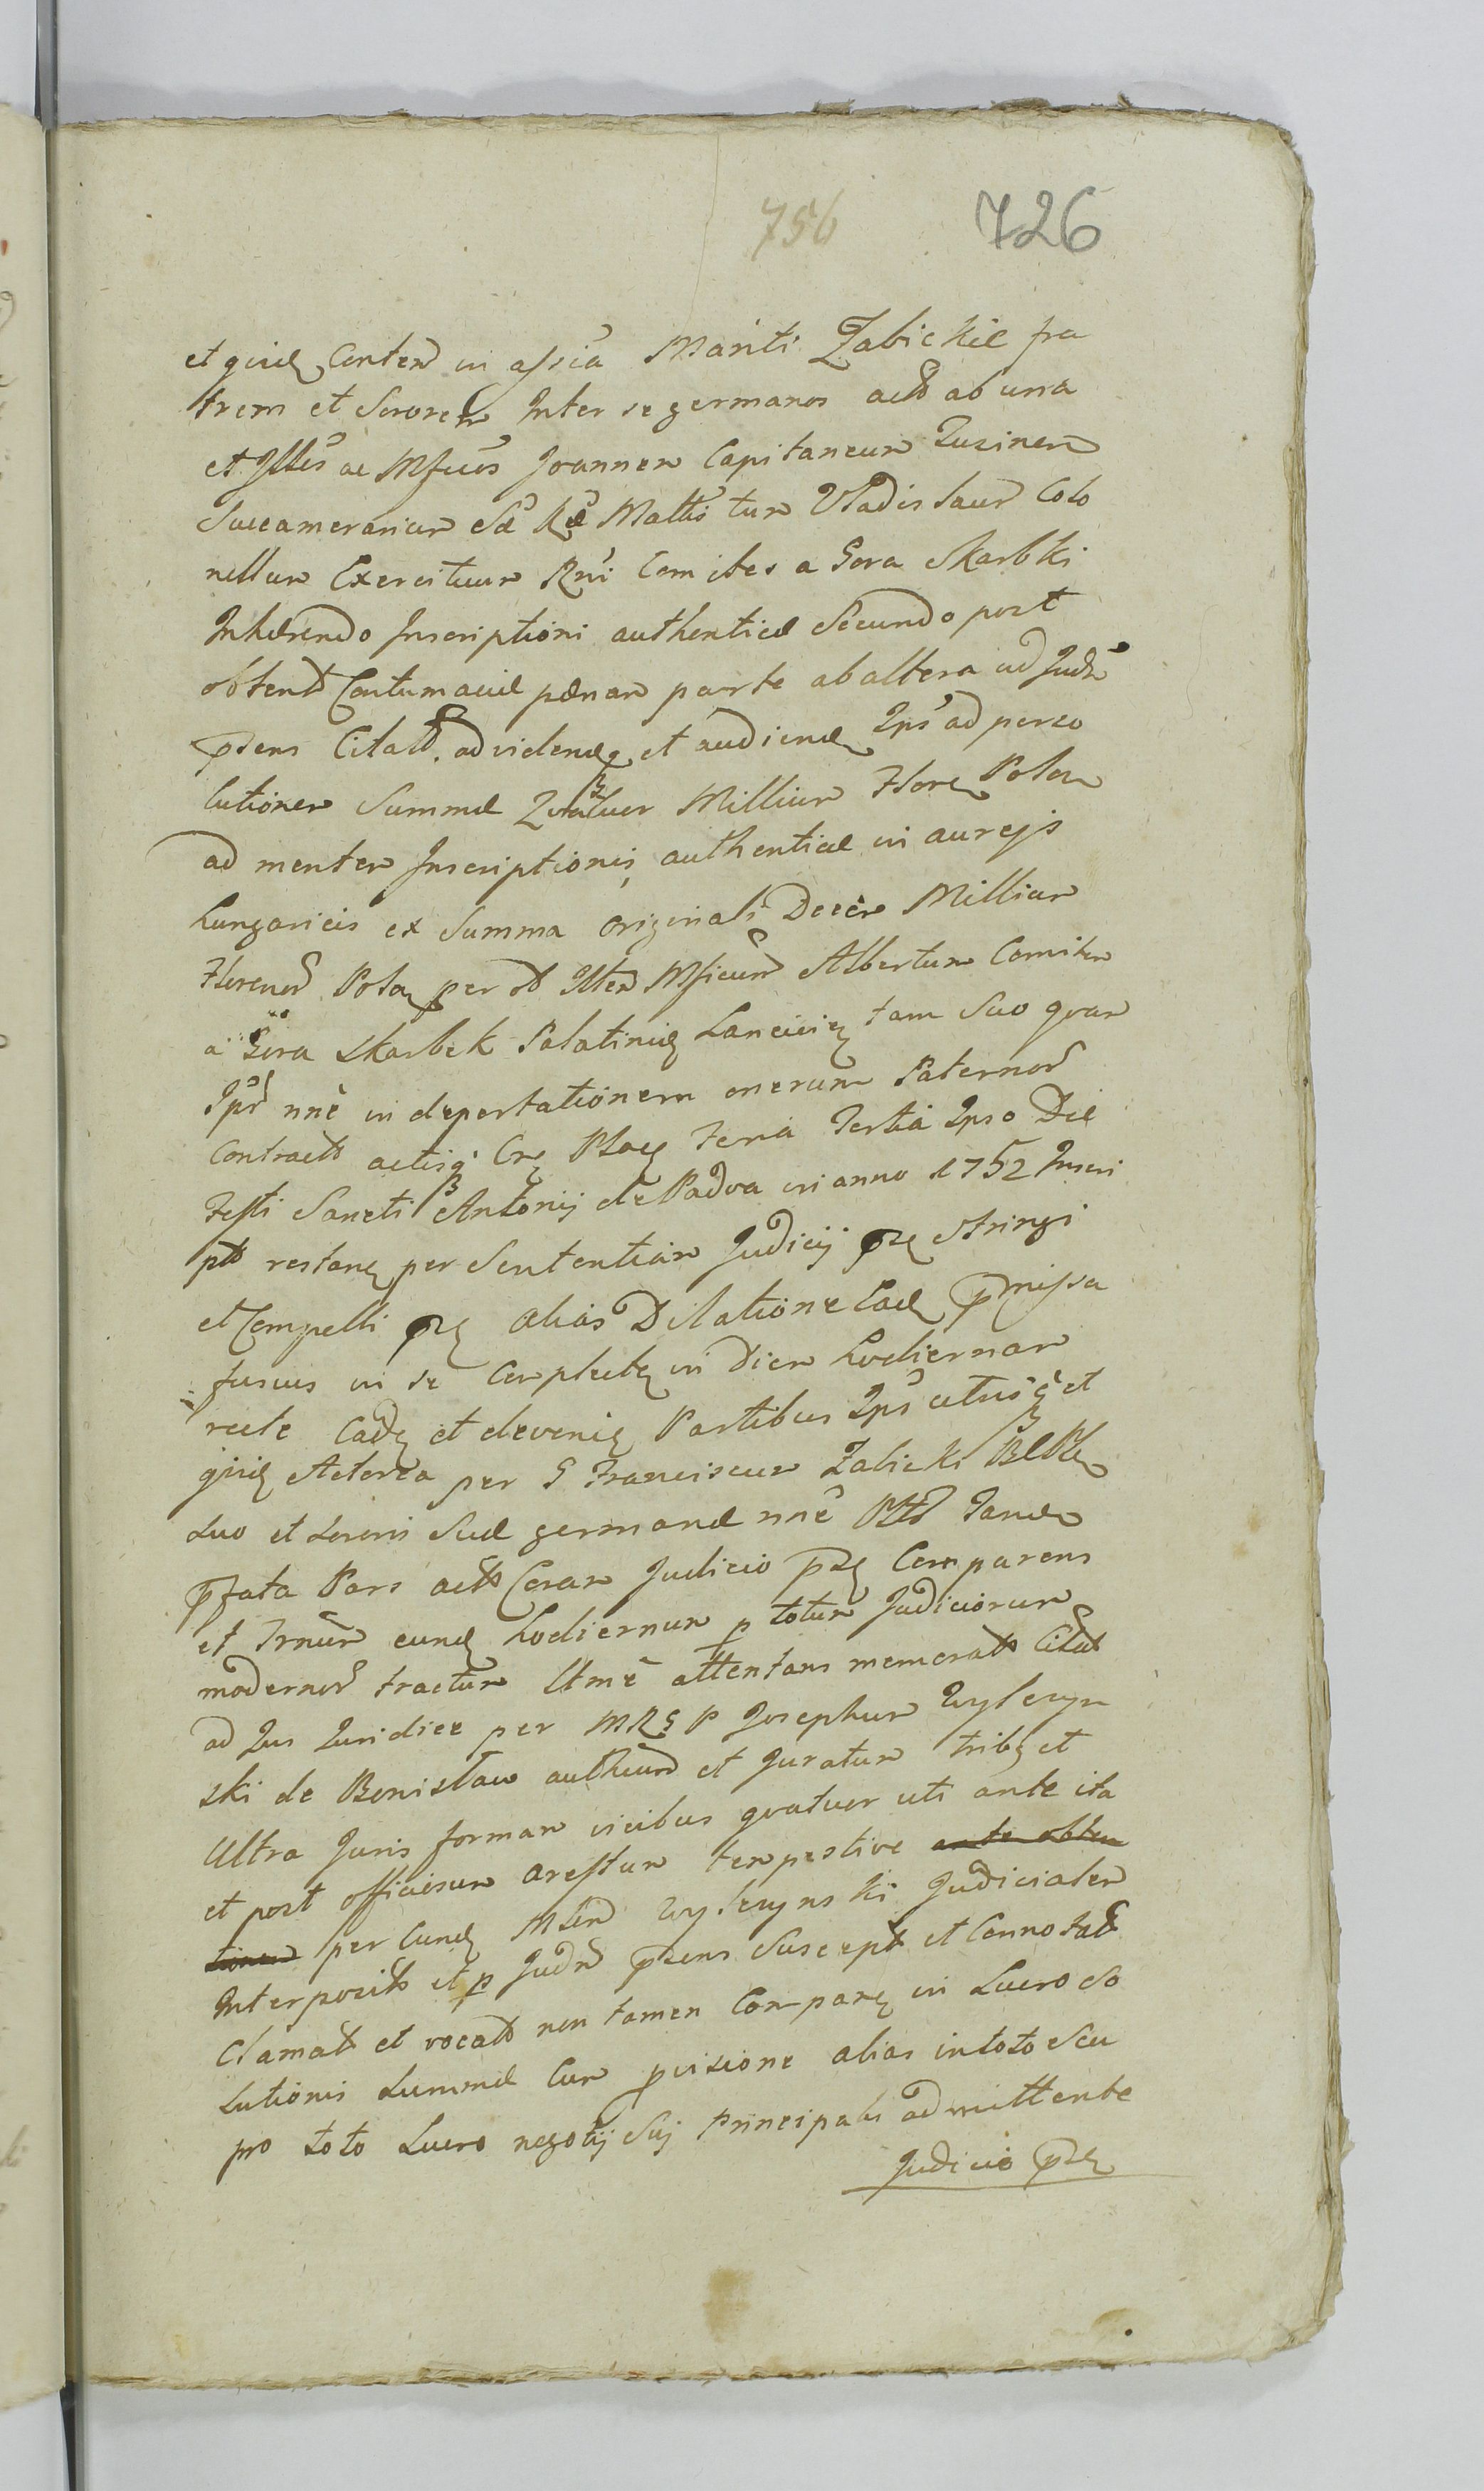 756 726
et qvidē Conten in assia Mariti Zabickie fra
trem et Sororem Inter se germanos acto ab una
et Illes ac Mfcos Joannem Capitaneum Zusinen
Succamerarium Sæ Ræ Mattis tum Vladislaum Colo
nellum Exercituum Rni Comites a Gora Skarbki
Inhærendo Inscriptioni authenticæ Secundo post
obtent Contumaciæ pænam parte ab altera ad Judm
psens Citatt. ad videndꝫ et audiendꝫ Ips ad perso
lutionem Summæ Qvatuor Millium Floreꝫ Polon
ad mentem Inscriptionis authenticæ in aureis
hungaricis ex Summa originali Decem Millium
Florenor Polꝫ per olt Illem Mficum Albertum Comitem
a Gora Skarbek Palatinꝫ Lanciciꝫ tam Suo qvam
Ipor nnē in deportationem onerum Paternor
contracto actisq Crꝫ Plocꝫ Feria Tertia Ipso Die
Festi Sancti Antonij de Padva in anno 1752 Inscri
pto restanꝫ per Sententiam Judicij psꝫ Stringi
et Compelli psꝫ alias Dilatione Eadꝫ pmissa
fusius in se Complectꝫ in Diem hodiernam
recte Cadꝫ et deveniꝫ Partibus Ips utrisq et
qvidꝫ Actorea per G Franciscum Zabicki BCPlꝫ
Suo et Sororis Suæ germanæ nnē Ptto Tandem
pfata Pars acto Coram Judicio psꝫ Comparens
et Trnum eundꝫ hodiernum p totum Judiciorum
modernor tractum Ltmē attentans memorato Citat
ad Jus Juridice per MRGP Josephum Zyleryn
ski de Bonislaw authcum et Juratum tribꝫ et
Ultra Juris formam vicibus qvatuor uti ante ita
et post officiosum arestum tempestive ante obten
tionem per Eundꝫ MGen Zylerynski Judicialem
Interposito et p Judm psens Suscept et Connotat
Clamat et vocat non tamen Comparꝫ in Lucro So
lutionis Summæ Cum pvisione alias in toto Seu
pro toto Lucro negotij Sui Principalis admittente
Judicio psꝫ